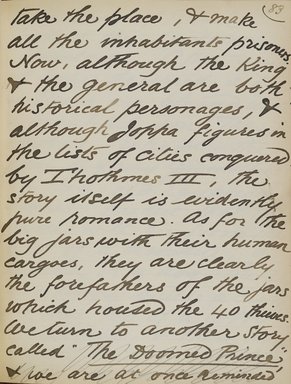 83
take the place, & make
all the inhabitants prisoners.
Now, although the King
& the general are both
historical personages, &
although Joppa figures in
the lists of cities conquered
by T'hothmes III, the
story itself is evidently
pure romance. As for the
big jars with their human
cargoes, they are clearly
the forefathers of the jars
which housed the 40 thieves.
We turn to another story
called "The Doomed Prince"
& we are at once reminded